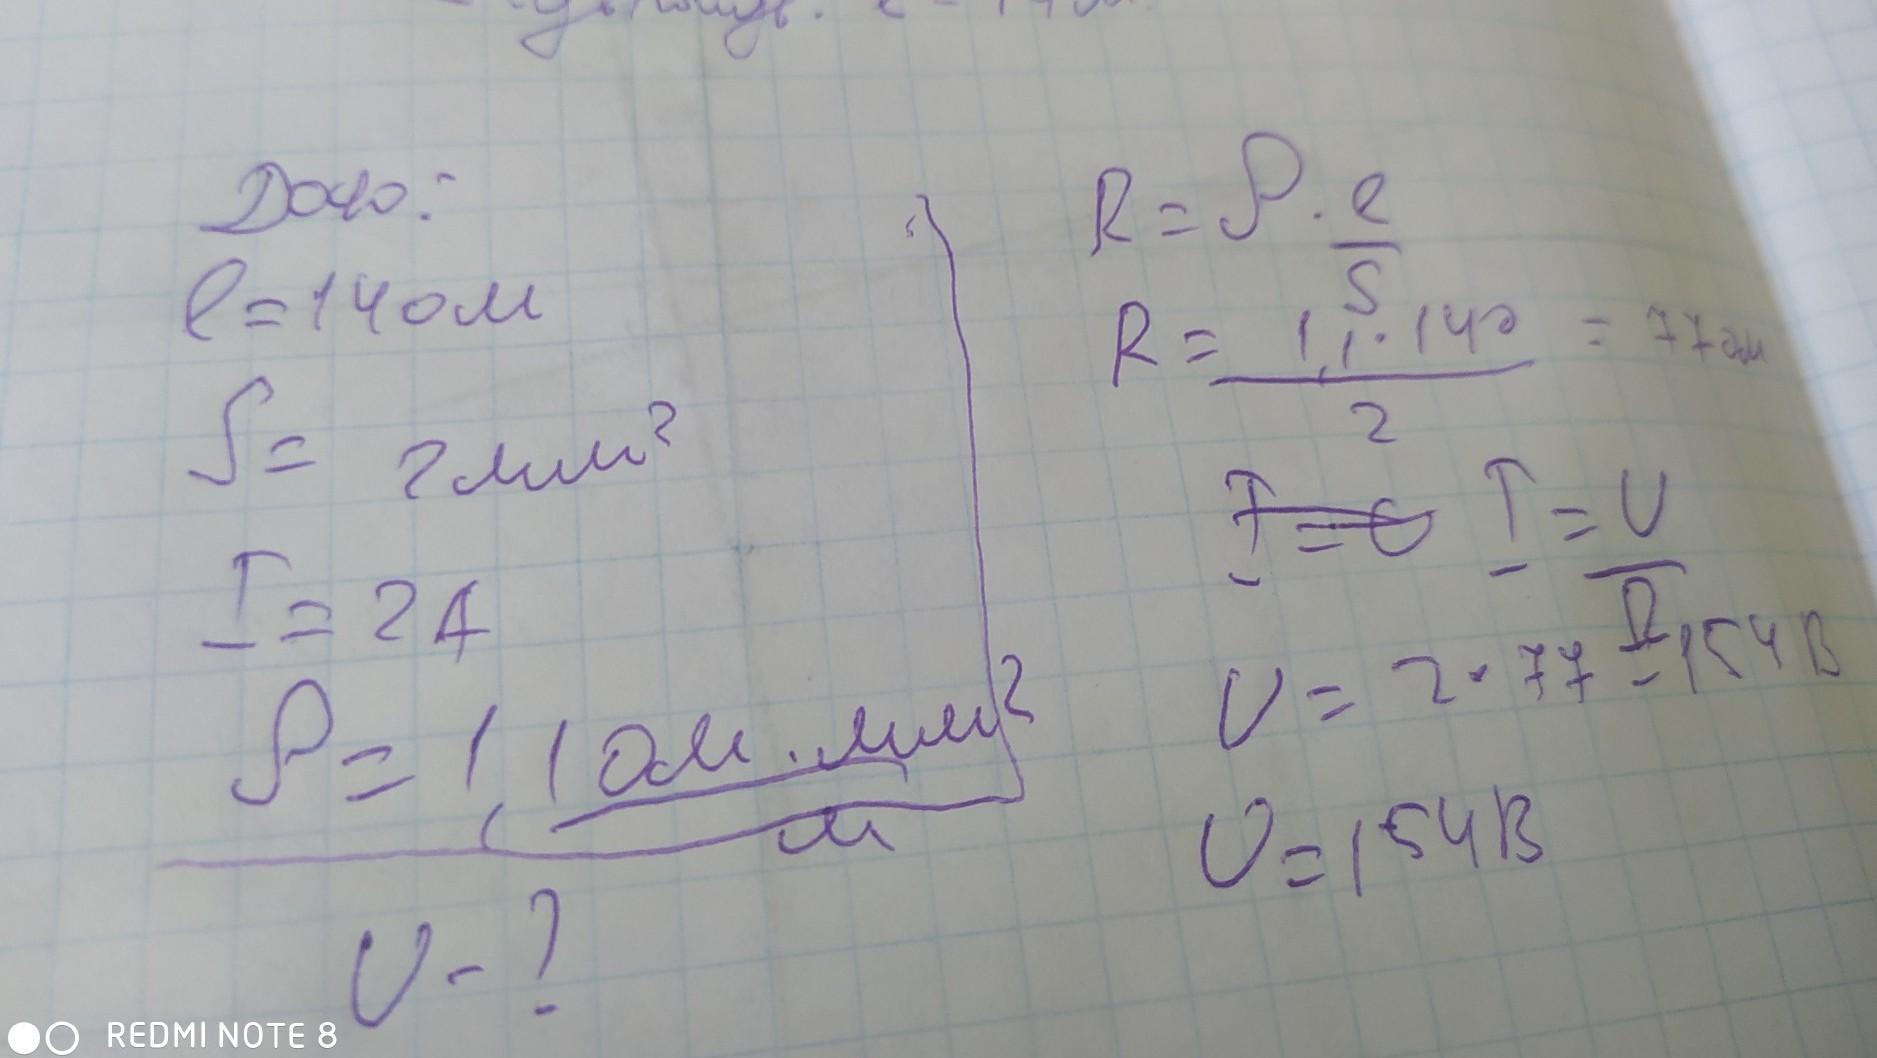 Дано:
l = 140 м
S = 2 мм²
I = 2 А
ρ = 1,1 Ом · мм²
м
U - ?
R = ρ · l
S
R = 1,1 · 140 = 77 Ом
2
I = U
R
U = 2 · 77 = 154 В
U = 154 В
REDMI NOTE 8